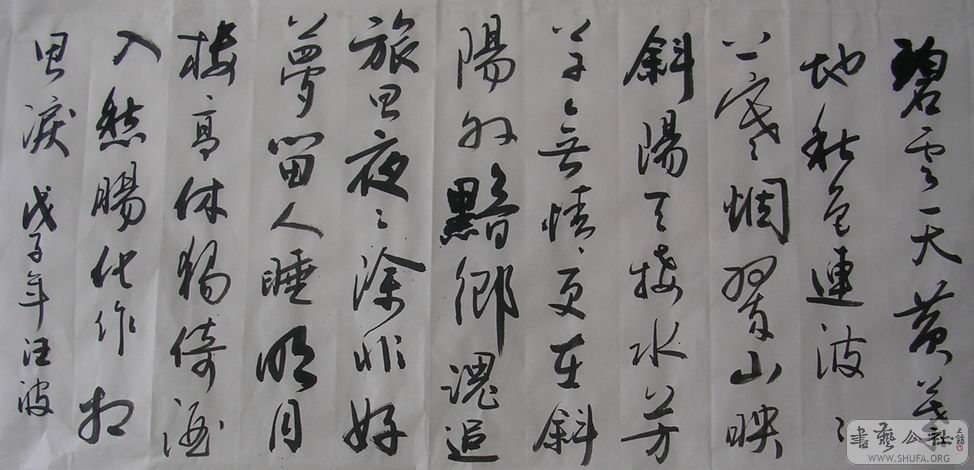 碧雲天黄葉
地秋色連波〻
上寒烟翠山映
斜陽天接水芳
草無情〻更在斜
陽外黯鄉魂追
旅思夜〻除非好
夢留人睡明月
樓高休獨倚酒
入愁腸化作相
思淚 戊子年汪波
書藝公社
WWW.SHUFA.ORG